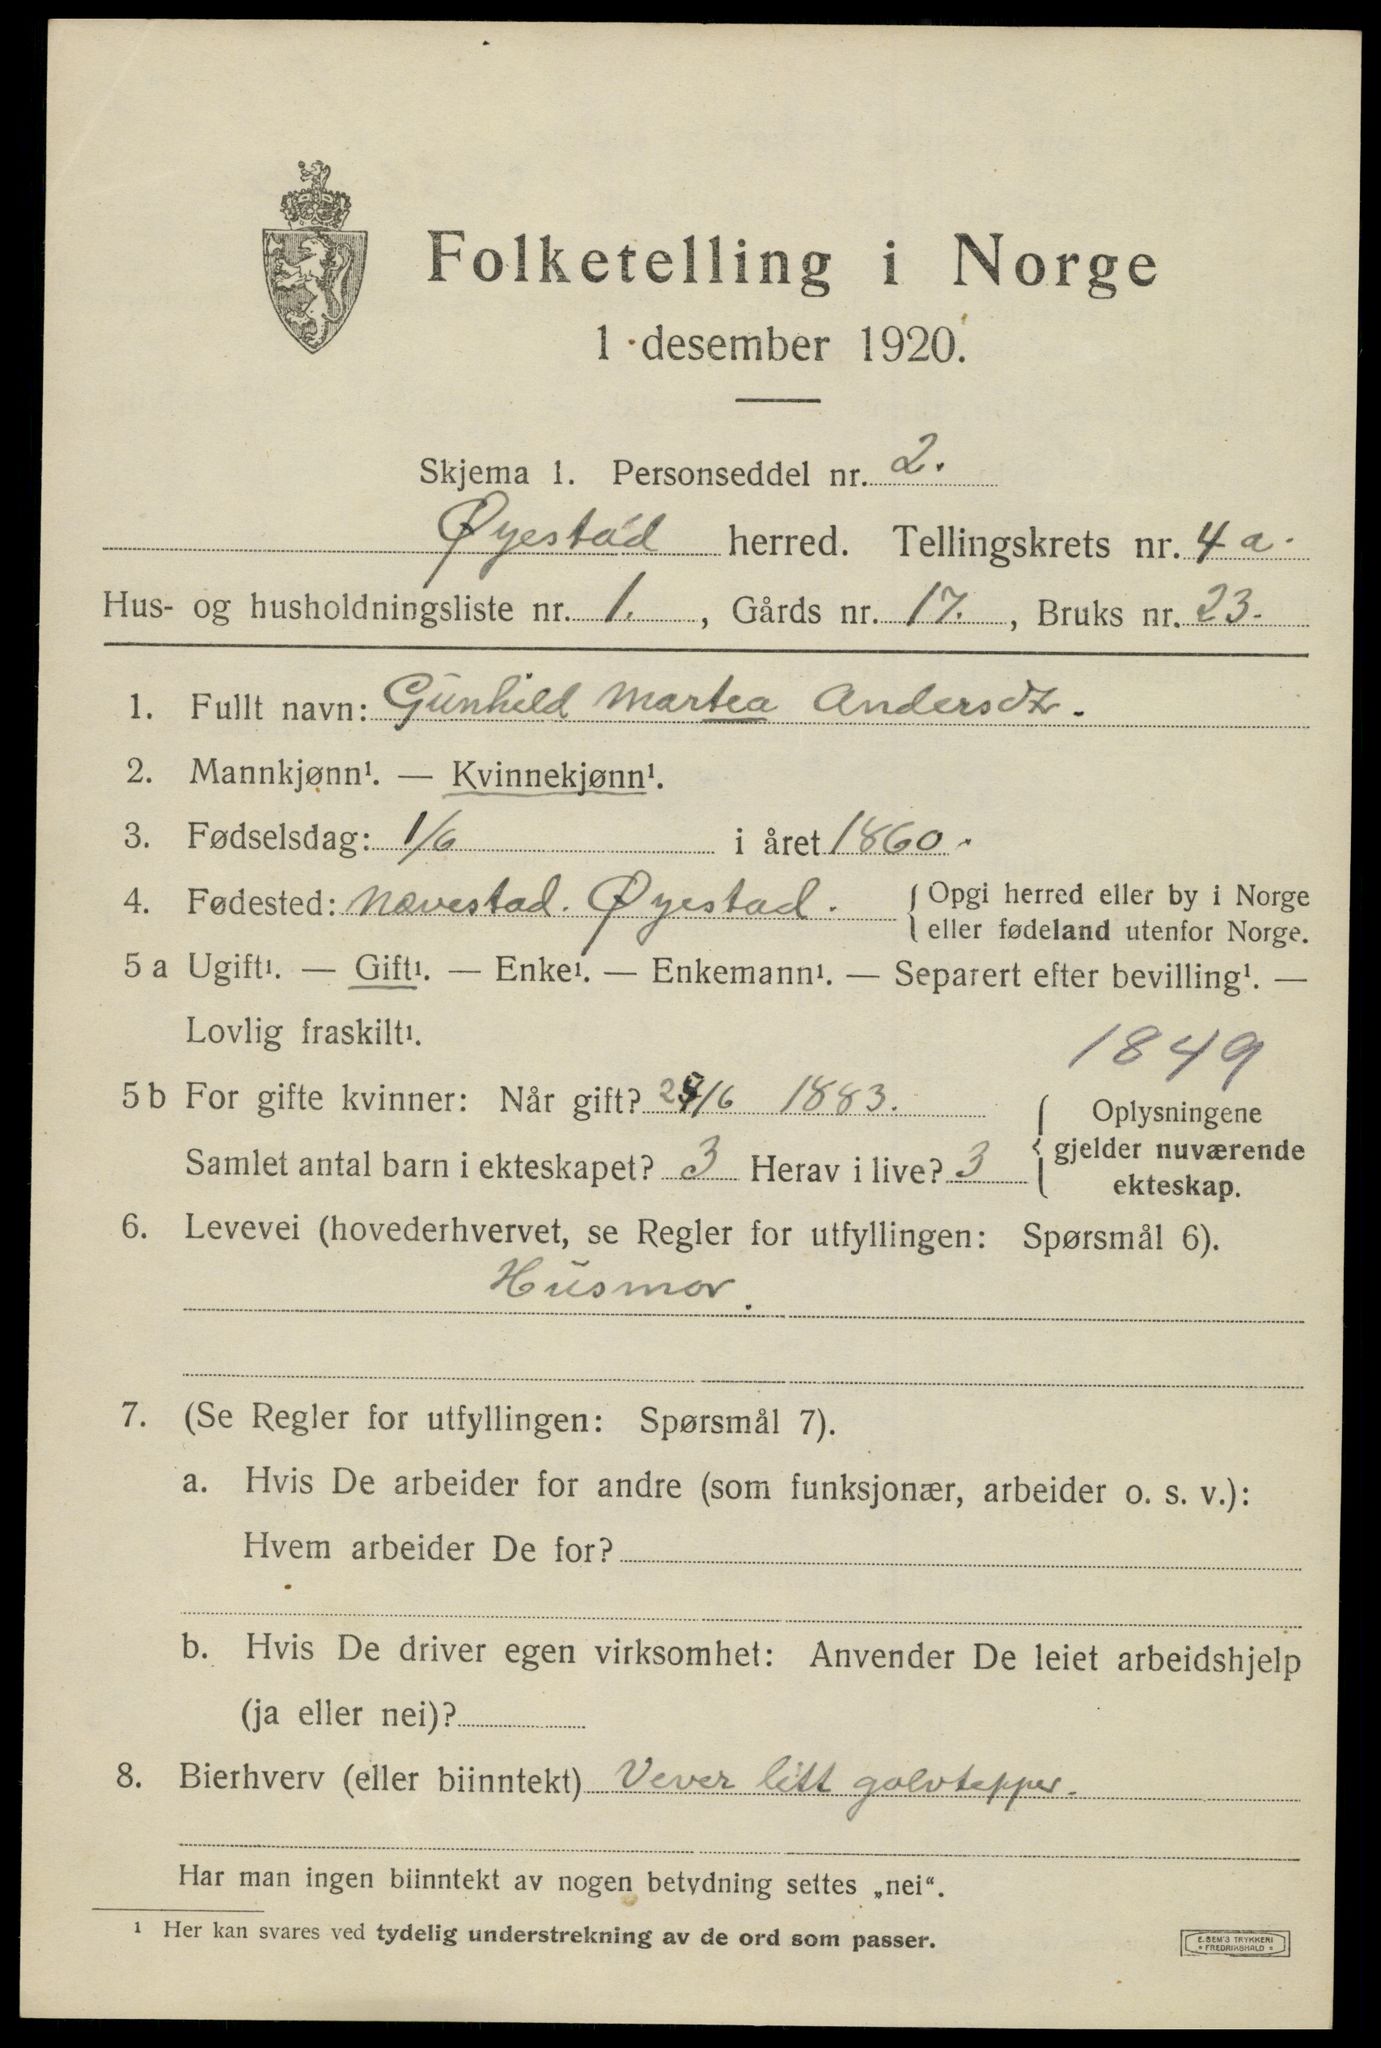 Folketelling i Norge
1 desember 1920.
Skjema 1. Personseddel nr. 2.
Øyestad herred. Tellingskrets nr. 4 a.
Hus- og husholdningsliste nr. 1., Gårds nr. 17., Bruks nr. 23.
1. Fullt navn: Gunhild Martea Andersdtr.
2. Mannkjønn¹. — Kvinnekjønn¹.
3. Fødselsdag: 1/6 i året 1860.
4. Fødested: Nævestad. Øyestad. { Opgi herred eller by i Norge
eller fødeland utenfor Norge.
5 a Ugift¹. — Gift¹. — Enke¹. — Enkemann¹. — Separert efter bevilling¹. —
Lovlig fraskilt¹.
1849
5 b For gifte kvinner: Når gift? /6 1883.
Samlet antal barn i ekteskapet? 3 Herav i live? 3
{ Oplysningene
gjelder nuværende
ekteskap.
6. Levevei (hovederhvervet, se Regler for utfyllingen: Spørsmål 6).
Husmor.
7. (Se Regler for utfyllingen: Spørsmål 7).
a. Hvis De arbeider for andre (som funksjonær, arbeider o. s. v.):
Hvem arbeider De for?
b. Hvis De driver egen virksomhet: Anvender De leiet arbeidshjelp
(ja eller nei)?
8. Bierhverv (eller biinntekt) Vever litt golvtepper.
Har man ingen biinntekt av nogen betydning settes „nei“.
¹ Her kan svares ved tydelig understrekning av de ord som passer.
E. SEM'S TRYKKERI
* FREDRIKSHALD *